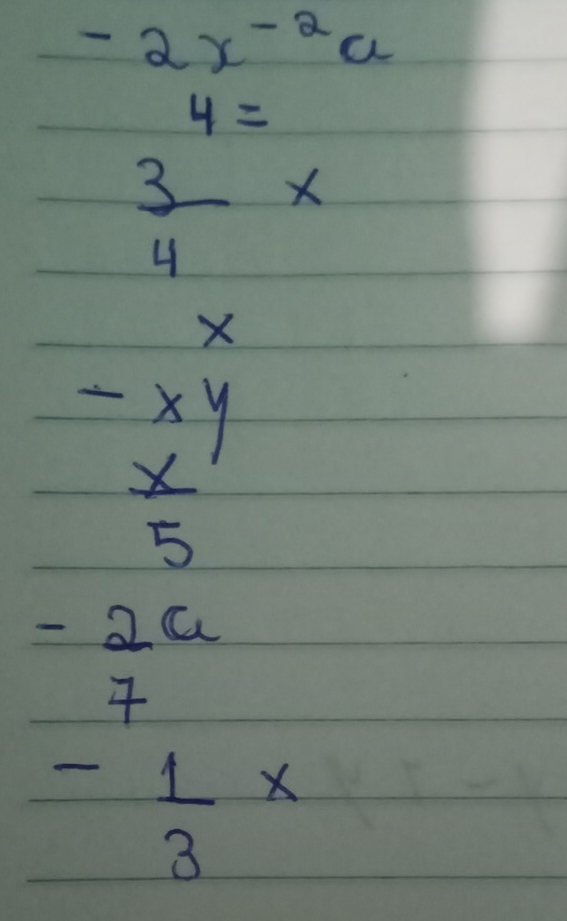 - 2x⁻²a
4 =
3/4 x
x
- xy
x/5
- 2/7 a
- 1/3 x